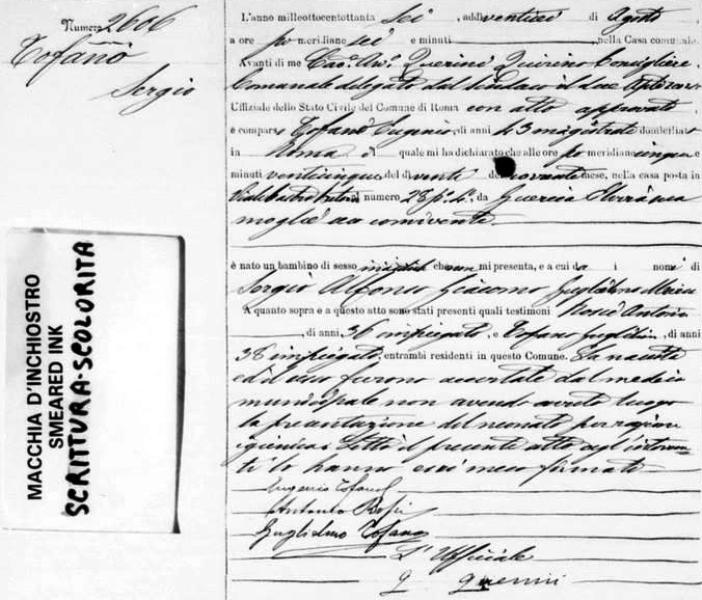 Numero 2606
Tofano
Sergio
L'anno milleottocentottanta sei, addì ventisei di Agosto
a ore pomeridiane sei e minuti, nella Casa comunale.
Avanti di me Cav. Avv. Querini Quirino Consigliere
Comunale delegato dal Sindaco il due
Uffiziale dello Stato Civile del Comune di Roma con atto approvato
è comparso Tofano Eugenio, di anni 43 magistrato domiciliato
in Roma il quale mi ha dichiarato che alle ore pomeridiane cinque e
minuti venticinque del dì venti del corrente mese, nella casa posta in
numero 28 da Guercia
moglie convivente
è nato un bambino di sesso che non mi presenta, e a cui dà i nomi di
Sergio Alfonso Giacomo Guglielmo Maria
A quanto sopra e a questo atto sono stati presenti quali testimoni Antonio
, di anni 36 impiegato, e Tofano Guglielmo, di anni
38 impiegato, entrambi residenti in questo Comune. La nascita
ed il sesso furono accertate dal medico
municipale non avendo avuto luogo
la presentazione del neonato per ragioni
igieniche. Letto il presente atto agli interve-
nuti lo hanno essi meco firmato
Eugenio Tofano
Antonio
Guglielmo Tofano
L'Uffiziale
Q Querini
MACCHIA D'INCHIOSTRO
SMEARED INK
SCRITTURA·SCOLORITA